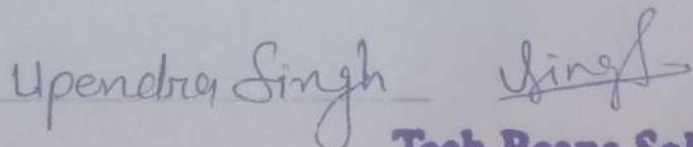 Upendra Singh Singh